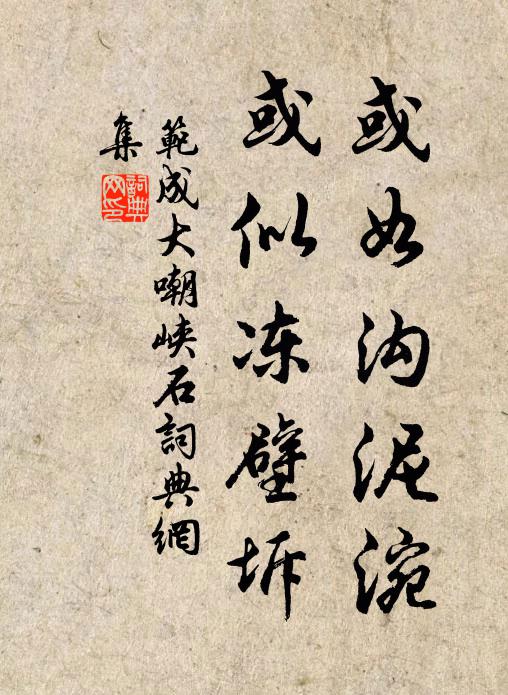 或如沟泥涴
或似冻壁坼
範成大嘲峡石詞典網
集
詞典网印